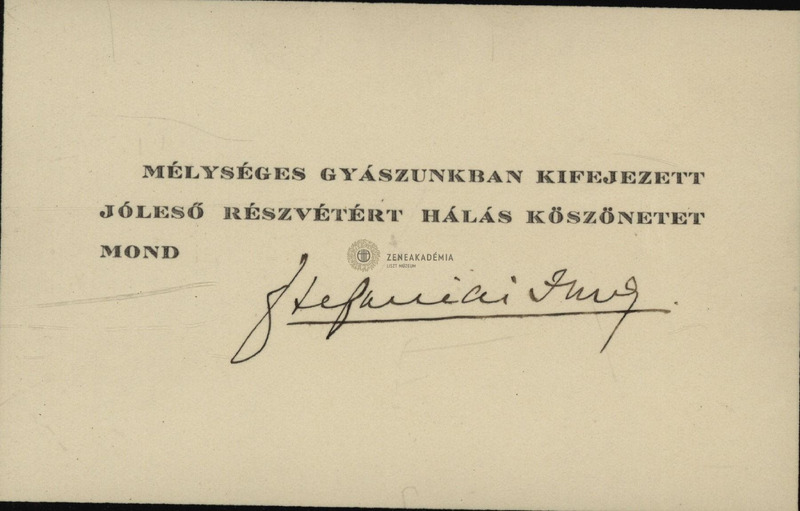 MÉLYSÉGES GYÁSZUNKBAN KIFEJEZETT
JÓLESŐ RÉSZVÉTÉRT HÁLÁS KÖSZÖNETET
MOND
ZENEAKADÉMIA
LISZT MÚZEUM
Stefániai Imre